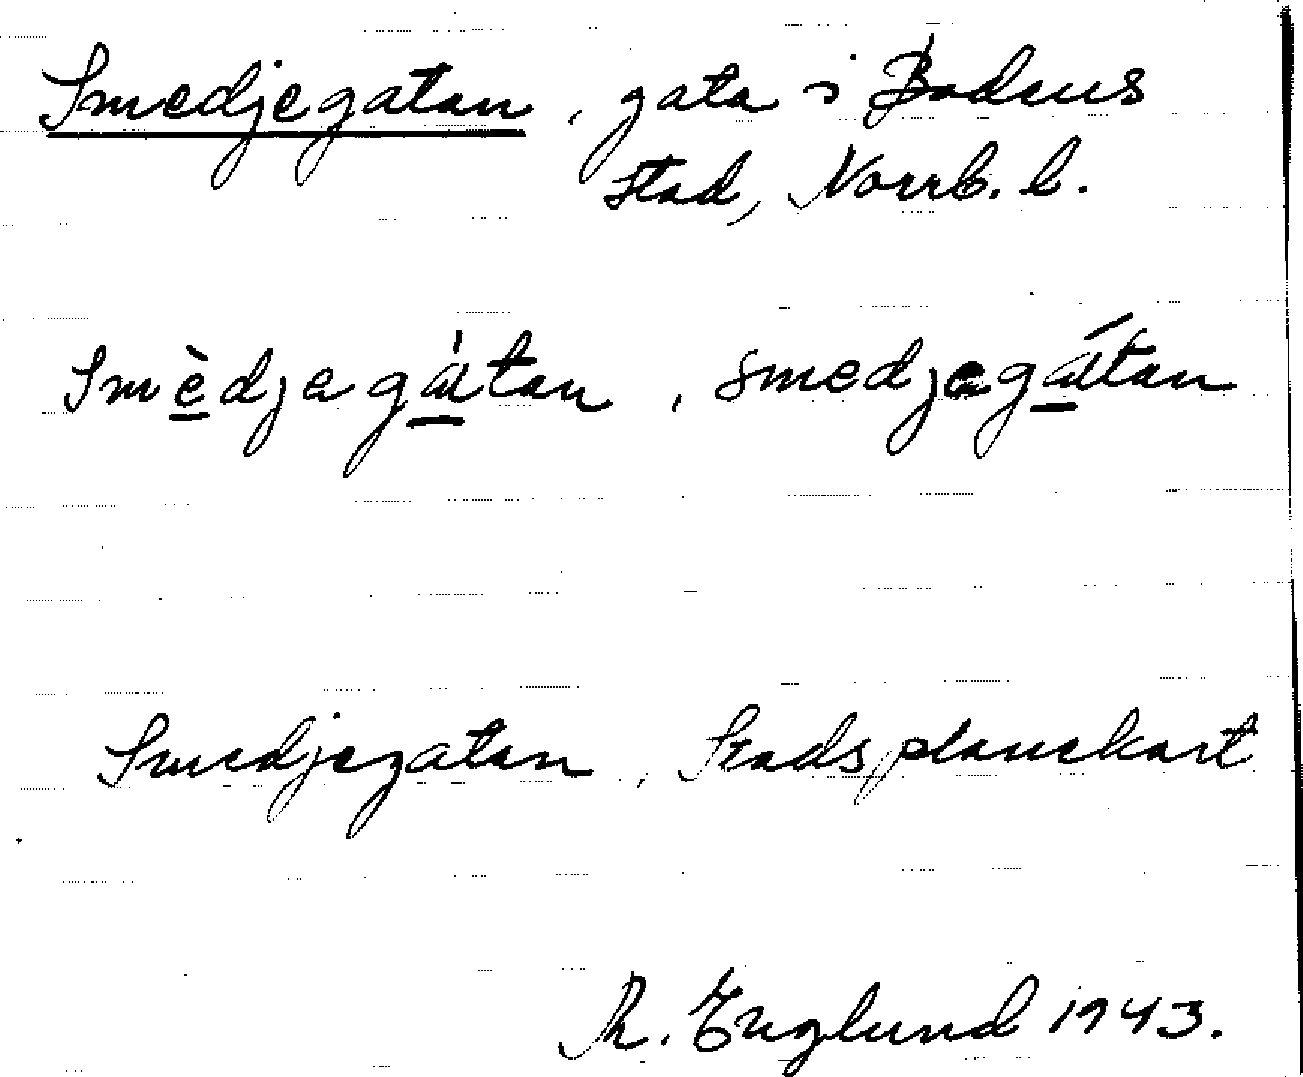 Smedjegatan, gata i Bodens
stad, Norrb. l.
Smèdjegàtan, smedjegátan
Smedjegatan, Stadsplanekart
R. Englund 1943.